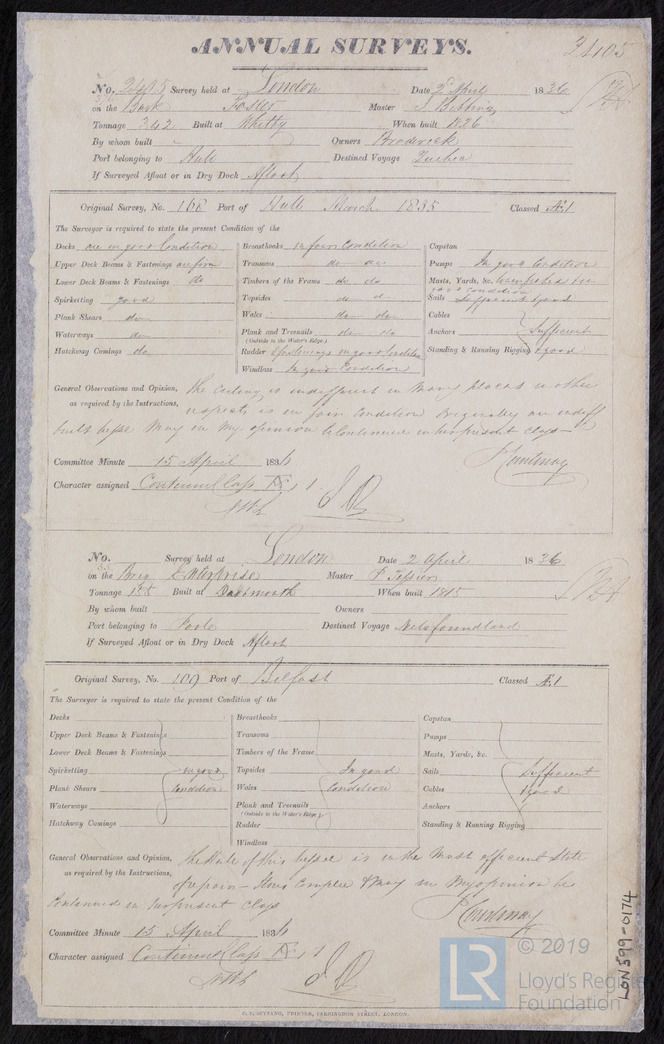 ANNUAL SURVEYS.
No. 2405 Survey held at London Date 2d April 1836
on the Bark Foster Master
Tonnage 342 Built at Whitby When built 1826
By whom built Owners Broderick
Port belonging to Hull Destined Voyage Quebec
If Surveyed Afloat or in Dry Dock Afloat
Original Survey, No. 168 Port of Hull March 1835 Classed Æ1
The Surveyor is required to state the present Condition of the
Decks are in good Condition
Upper Deck Beams & Fastenings are firm
Lower Deck Beams & Fastenings do
Spirketting good
Plank Shears do
Waterways do
Hatchway Comings do
Breasthooks in fair Condition
Transoms do do
Timbers of the Frame do do
Topsides do d
Wales do do
Plank and Treenails do do
(Outside to the Water's Edge)
Rudder & fastenings in good Condition
Windlass In good Condition
Capstan
Pumps In good Condition
Masts, Yards, &c.
good Condition
Sails Sufficient & good
Cables
Anchors Sufficient
Standing & Running Rigging & good
General Observations and Opinion, the Ceiling is indifferent in Many places in other
as required by the Instructions, respects is in fair Condition Originally an indifft
built vessel May in My opinion be Continued in her present Class
Courtenay
Committee Minute 15 April 1836
Character assigned Continued Class Æ 1
No. Survey held at London Date 2 April 1836
on the Brig Enterprise Master P Tessier
Tonnage Built at Dartmouth When built 1815
By whom built Owners
Port belonging to Poole Destined Voyage Newfoundland
If Surveyed Afloat or in Dry Dock Afloat
Original Survey, No. 109 Port of Belfast Classed Æ1
The Surveyor is required to state the present Condition of the
Decks
Upper Deck Beams & Fastenings
Lower Deck Beams & Fastenings
Spirketting in good
Plank Shears Condition
Waterways
Hatchway Comings
Breasthooks
Transoms
Timbers of the Frame
Topsides In good
Wales Condition
Plank and Treenails
(Outside to the Water's Edge)
Rudder
Windlass
Capstan
Pumps
Masts, Yards, &c.
Sails Sufficient
Cables & good
Anchors
Standing & Running Rigging
General Observations and Opinion, the Hull of this vessel is in the Most efficient state
as required by the Instructions, of repair Stores Complete & May in My opinion be
Continued in her present Class
Courtenay
Committee Minute 15 April 1836
Character assigned Continued Class Æ 1
C. F. SEYFANG, PRINTER, FARRINGDON STREET, LONDON.
LON599-0174
LR
© 2019
Lloyd's Register
Foundation